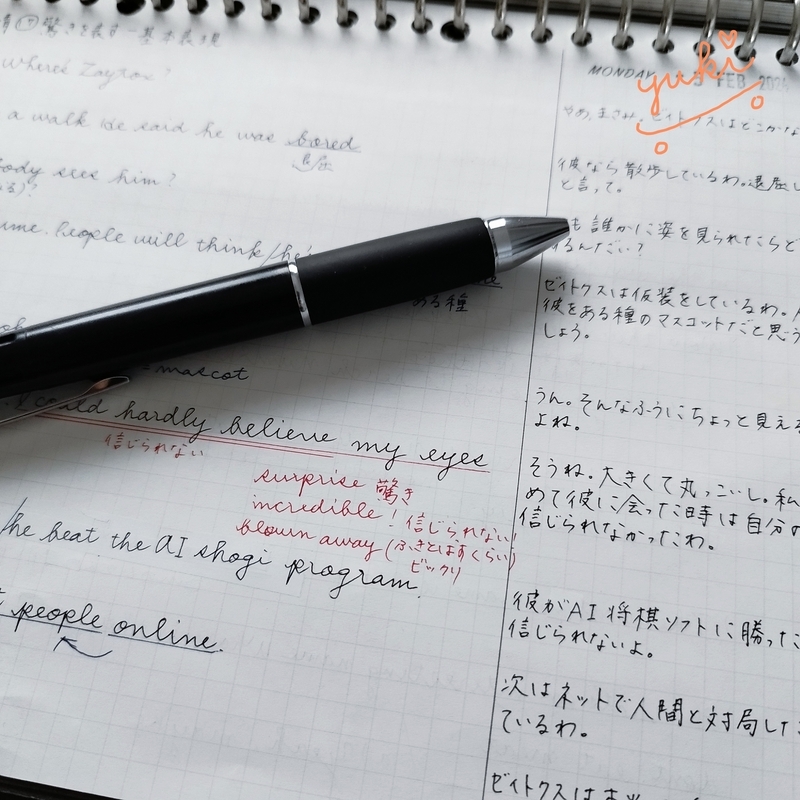 驚きを表す基本表現
Where's Zayrox?
a walk He said he was bored
退屈
body sees him?
People will think he's
ある種
= mascot
I could hardly believe my eyes
信じられない
surprise 驚き
incredible! 信じられない!
blown away (ふきとばすくらい)
ビックリ
he beat the AI shogi program.
people online.
yuki
MONDAY FEB 202
彼なら散歩しているわ。退屈し
と言って。
も誰かに姿を見られたらど
るんだい?
ゼイトクスは仮装をしているわ。
彼をある種のマスコットだと思う
しょう。
うん。そんなふうにちょっと見える
よね。
そうね。大きくて丸っこいし。私
めて彼に会った時は自分の
信じられなかったわ。
彼がAI将棋ソフトに勝った
信じられないよ。
次はネットで人間と対局した
ているわ。
ゼイトクスは